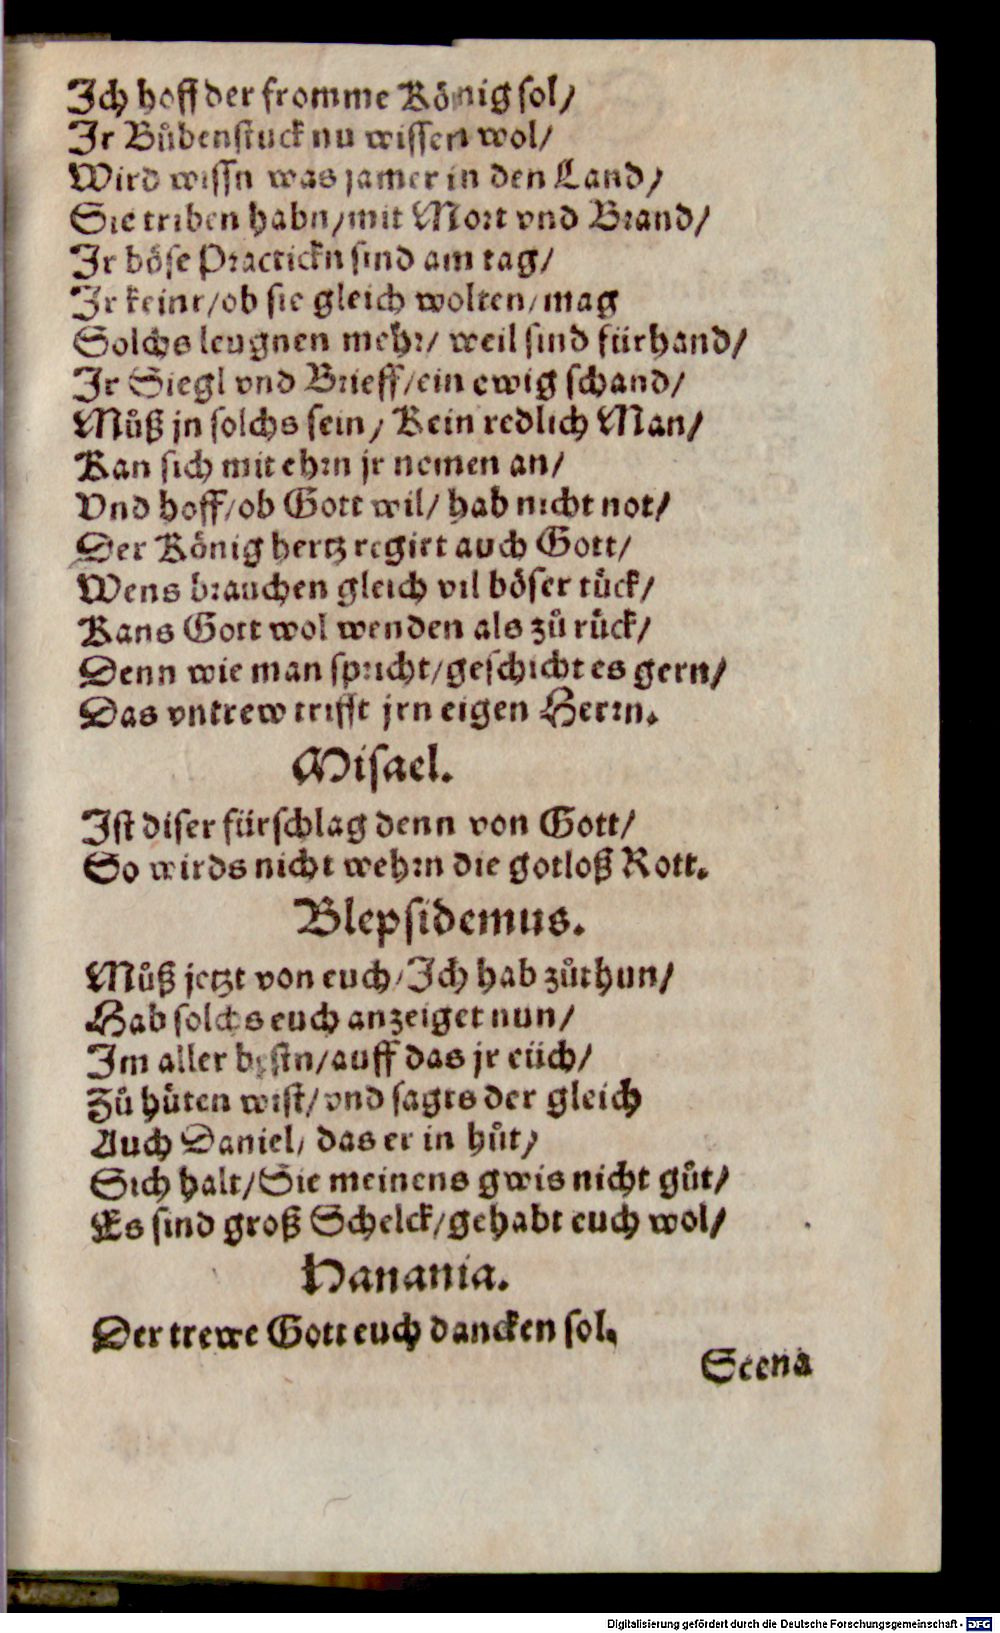 Ich hoff der fromme König sol/
Ir Bůbenstuck nu wissen wol/
Wird wissn was jamer in den Land/
Sie triben habn/mit Mort vnd Brand/
Ir böse Practickn sind am tag/
Ir keinr/ob sie gleich wolten/mag
Solchs leugnen mehr/ weil sind fürhand/
Ir Siegl vnd Brieff/ein ewig schand/
Můß jn solchs sein/ Kein redlich Man/
Kan sich mit ehrn jr nemen an/
Vnd hoff/ob Gott wil/ hab nicht not/
Der König hertz regirt auch Gott/
Wens brauchen gleich vil böser tück/
Kans Gott wol wenden als zů rück/
Denn wie man spricht/geschicht es gern/
Das vntrew trifft jrn eigen Herrn.
Misael.
Ist diser fürschlag denn von Gott/
So wirds nicht wehrn die gotloß Rott.
Blepsidemus.
Můß jetzt von euch/Ich hab zůthun/
Hab solchs euch anzeiget nun/
Im aller bestn/auff das jr eüch/
Zů hüten wist/vnd sagts der gleich
Auch Daniel/ das er in hůt/
Sich halt/Sie meinens gwis nicht gůt/
Es sind groß Schelck/gehabt euch wol/
Hanania.
Der trewe Gott euch dancken sol.
Scena
Digitalisierung gefördert durch die Deutsche Forschungsgemeinschaft - DFG